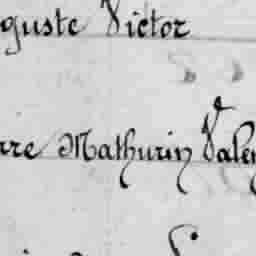 guste Victor
rre Mathurin Valen